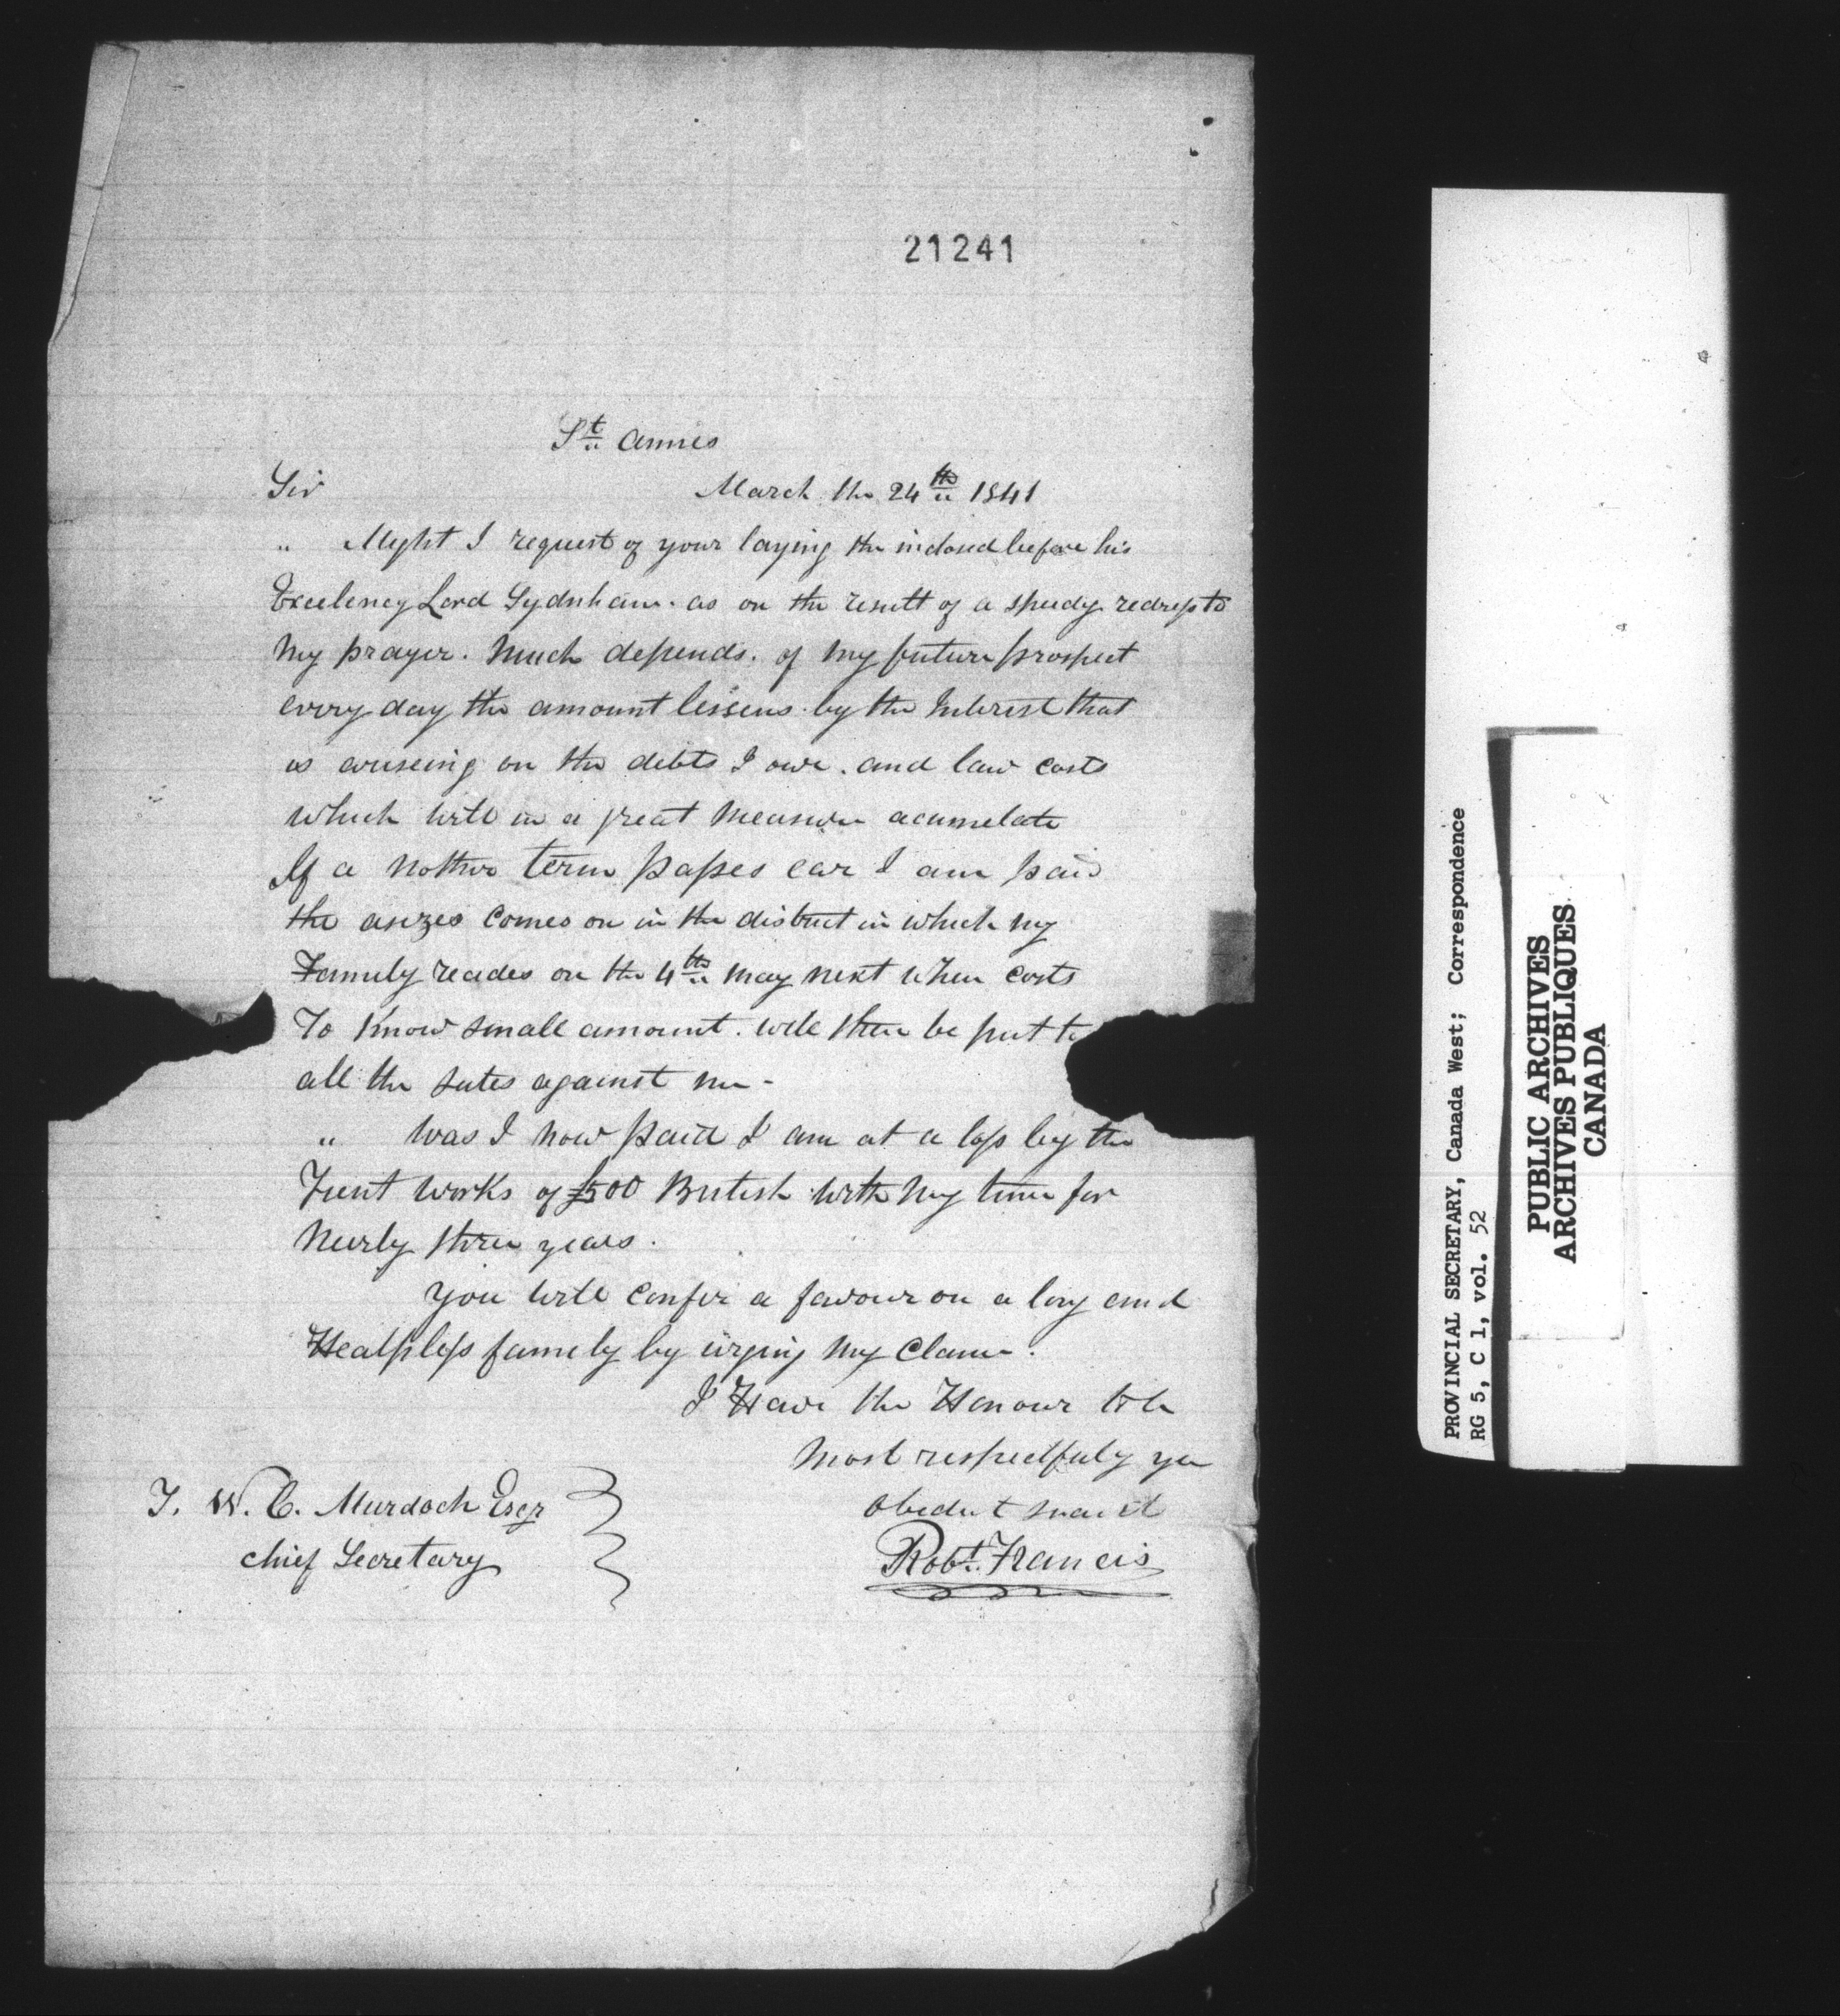 21241
St Annes
Sir March the 24th 1841
" Myht I request of your laying the inclosed before his
Excelency Lord Sydnham. as on the result of a speedy redress to
My prayer. Much depends. of my future prospect
every day the amount lessens by the Interest that
is acruseing on the debts I owe. and law costs
which will in a great measure acumelate
If a nother term passes ear I am paid
the asizes comes on in the district in which my
Family recides on the 4th May next when costs
To know small amount. will then be put to
all the sutes against me -
" Was I now paid I am at a loss by the
Trent works of £500 British with my time for
Neerly three years.
You will confir a favour on a larg and
Healpless famely by urging my Claim.
I Have the Honour to be
Most respectfuly yr
Obedient servant
Robt. Francis
T. W. C. Murdoch Esqr
chief Secretary
PROVINCIAL SECRETARY, Canada West; Correspondence
RG 5, C 1, vol. 52
PUBLIC ARCHIVES
ARCHIVES PUBLIQUES
CANADA